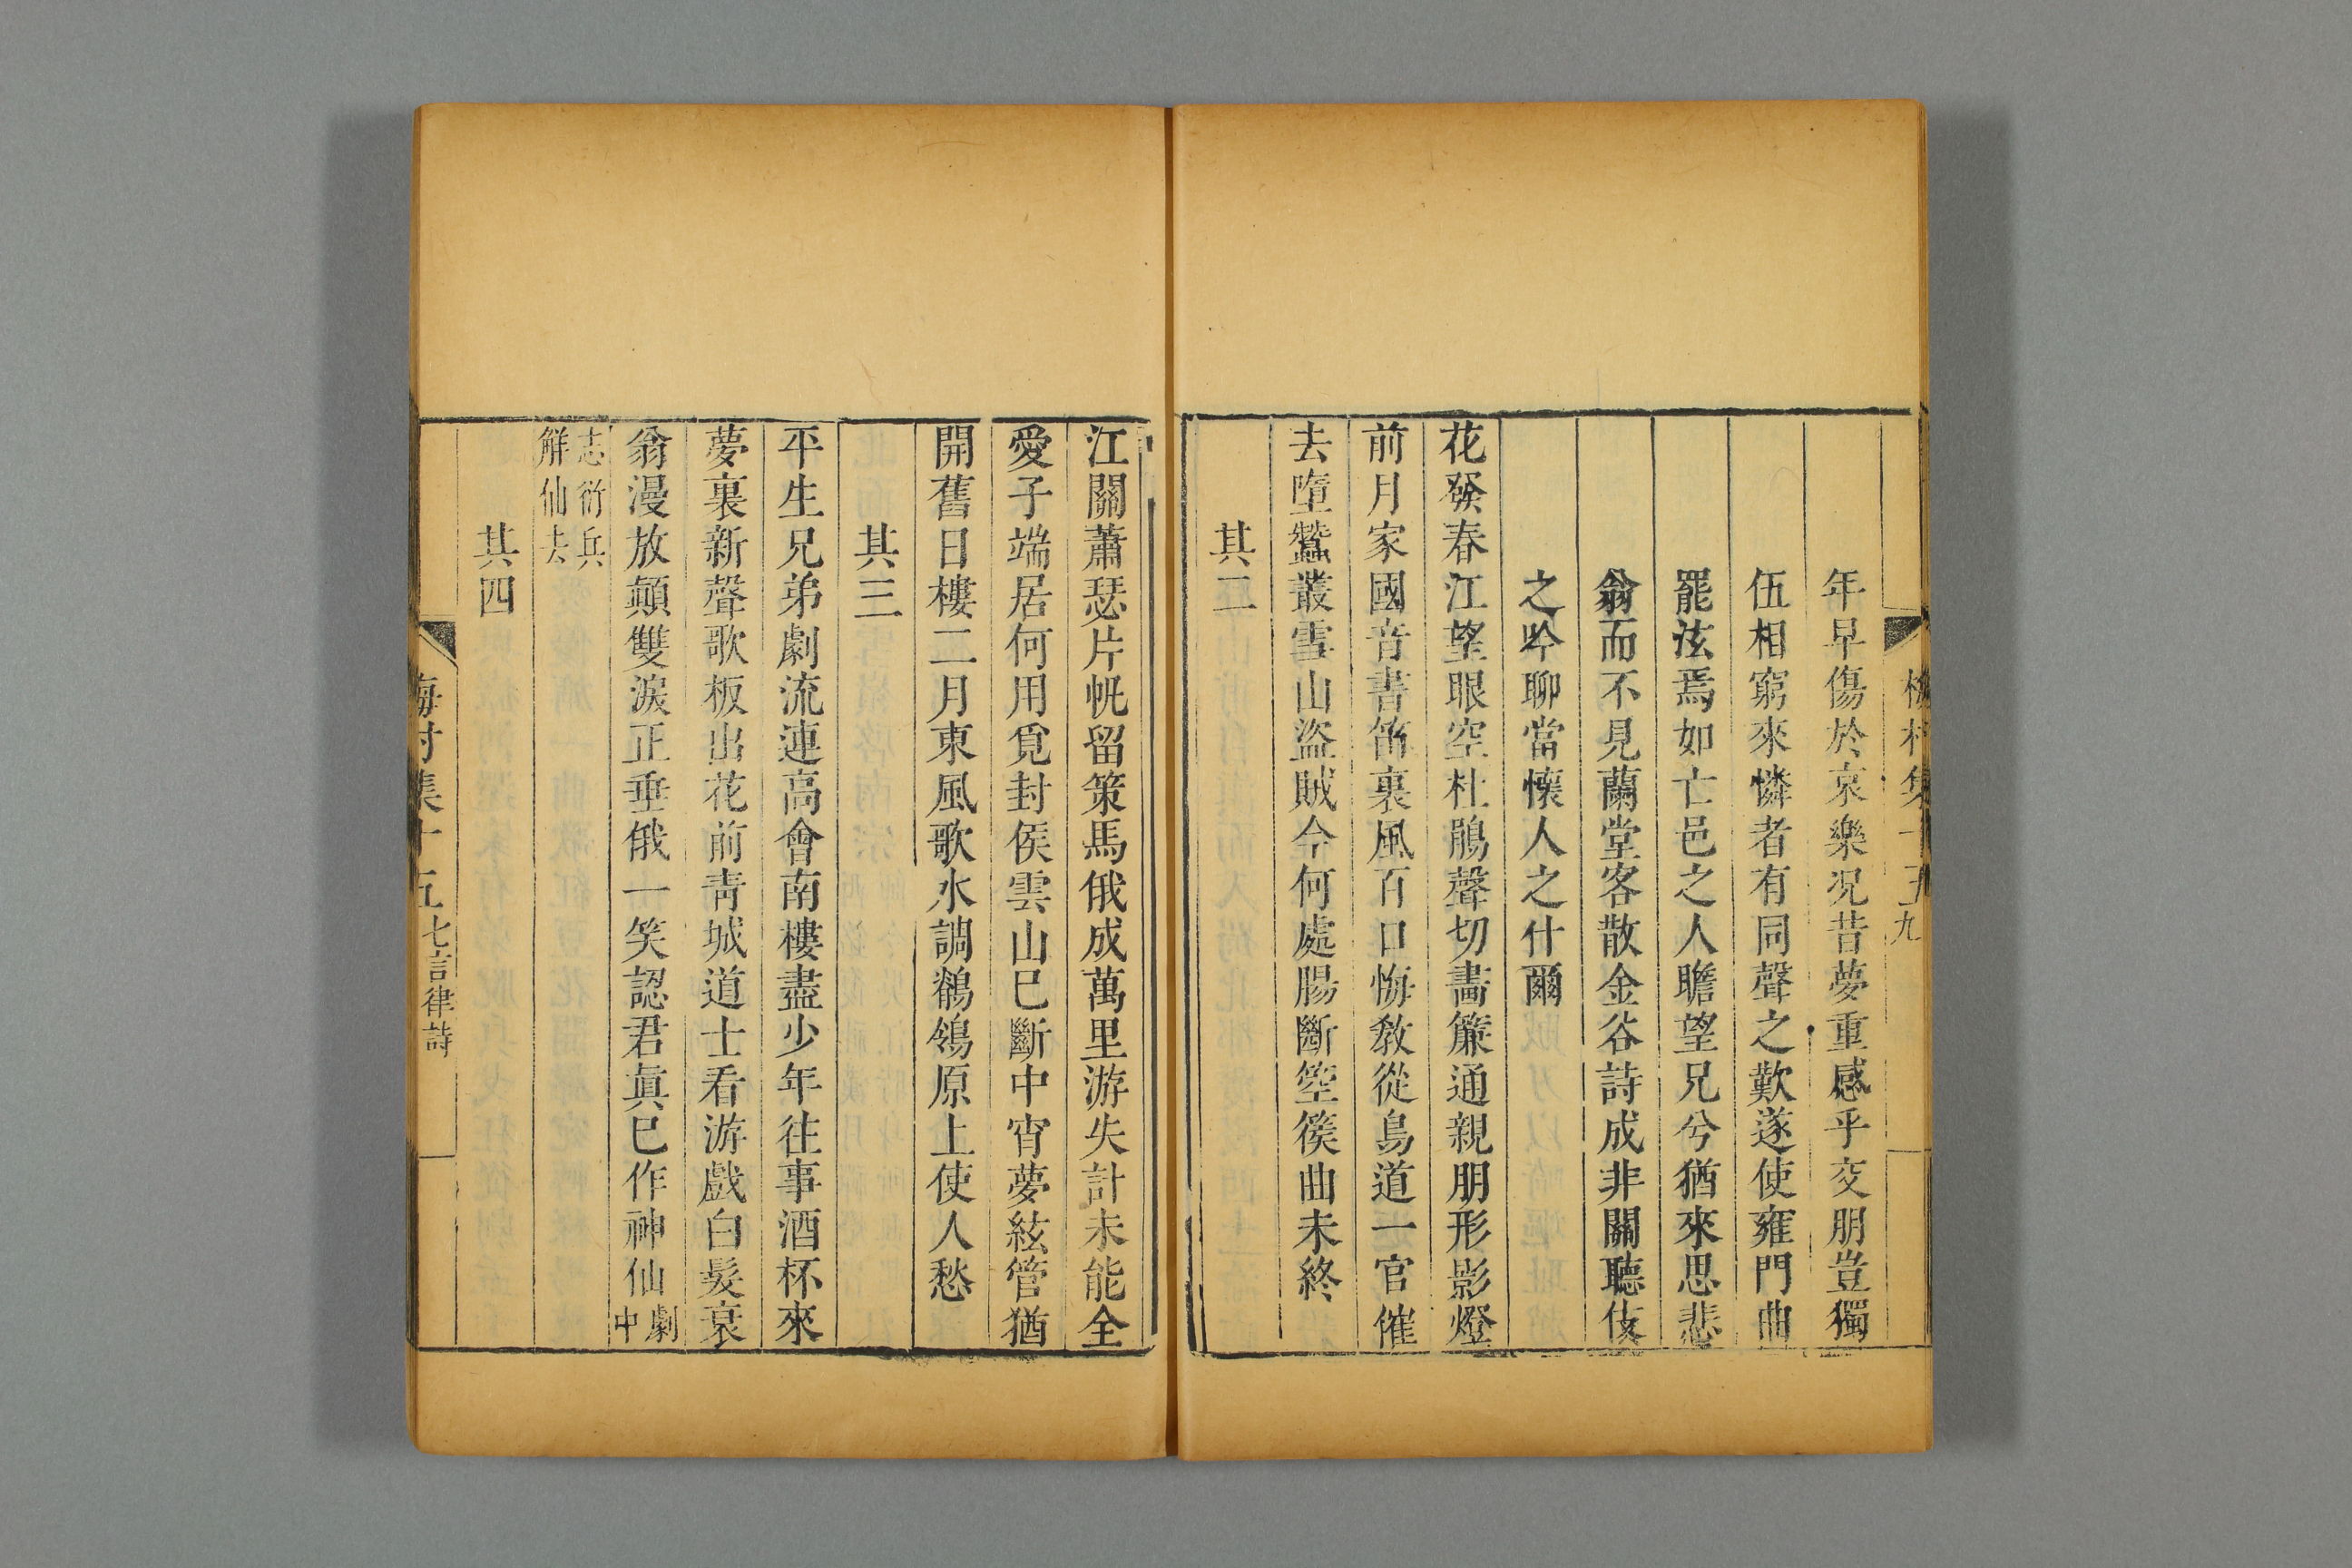 梅村集十五 九
年早傷於哀樂况昔夢重感乎交朋豈獨
伍相窮來憐者有同聲之歎遂使雍門曲
罷泫焉如亡邑之人瞻望兄兮猶來思悲
翁而不見蘭堂客散金谷詩成非關聽伎
之吟聊當懷人之什爾
花發春江望眼空杜鵑聲切畵簾通親朋形影燈
前月家國音書笛裏風百口悔教從鳥道一官催
去墮蠶叢雪山盜賊今何處腸斷箜篌曲未終
其二
江關蕭瑟片帆留策馬俄成萬里游失計未能全
愛子端居何用覓封侯雲山已斷中宵夢絃管猶
開舊日樓二月東風歌水調鶺鴒原上使人愁
其三
平生兄弟劇流連高會南樓盡少年往事酒杯來
夢裏新聲歌板出花前靑城道士看游戯白髮衰
翁漫放顛雙淚正垂俄一笑認君眞已作神仙劇中
志衍兵
解仙去
其四
梅村集十五 七言律詩